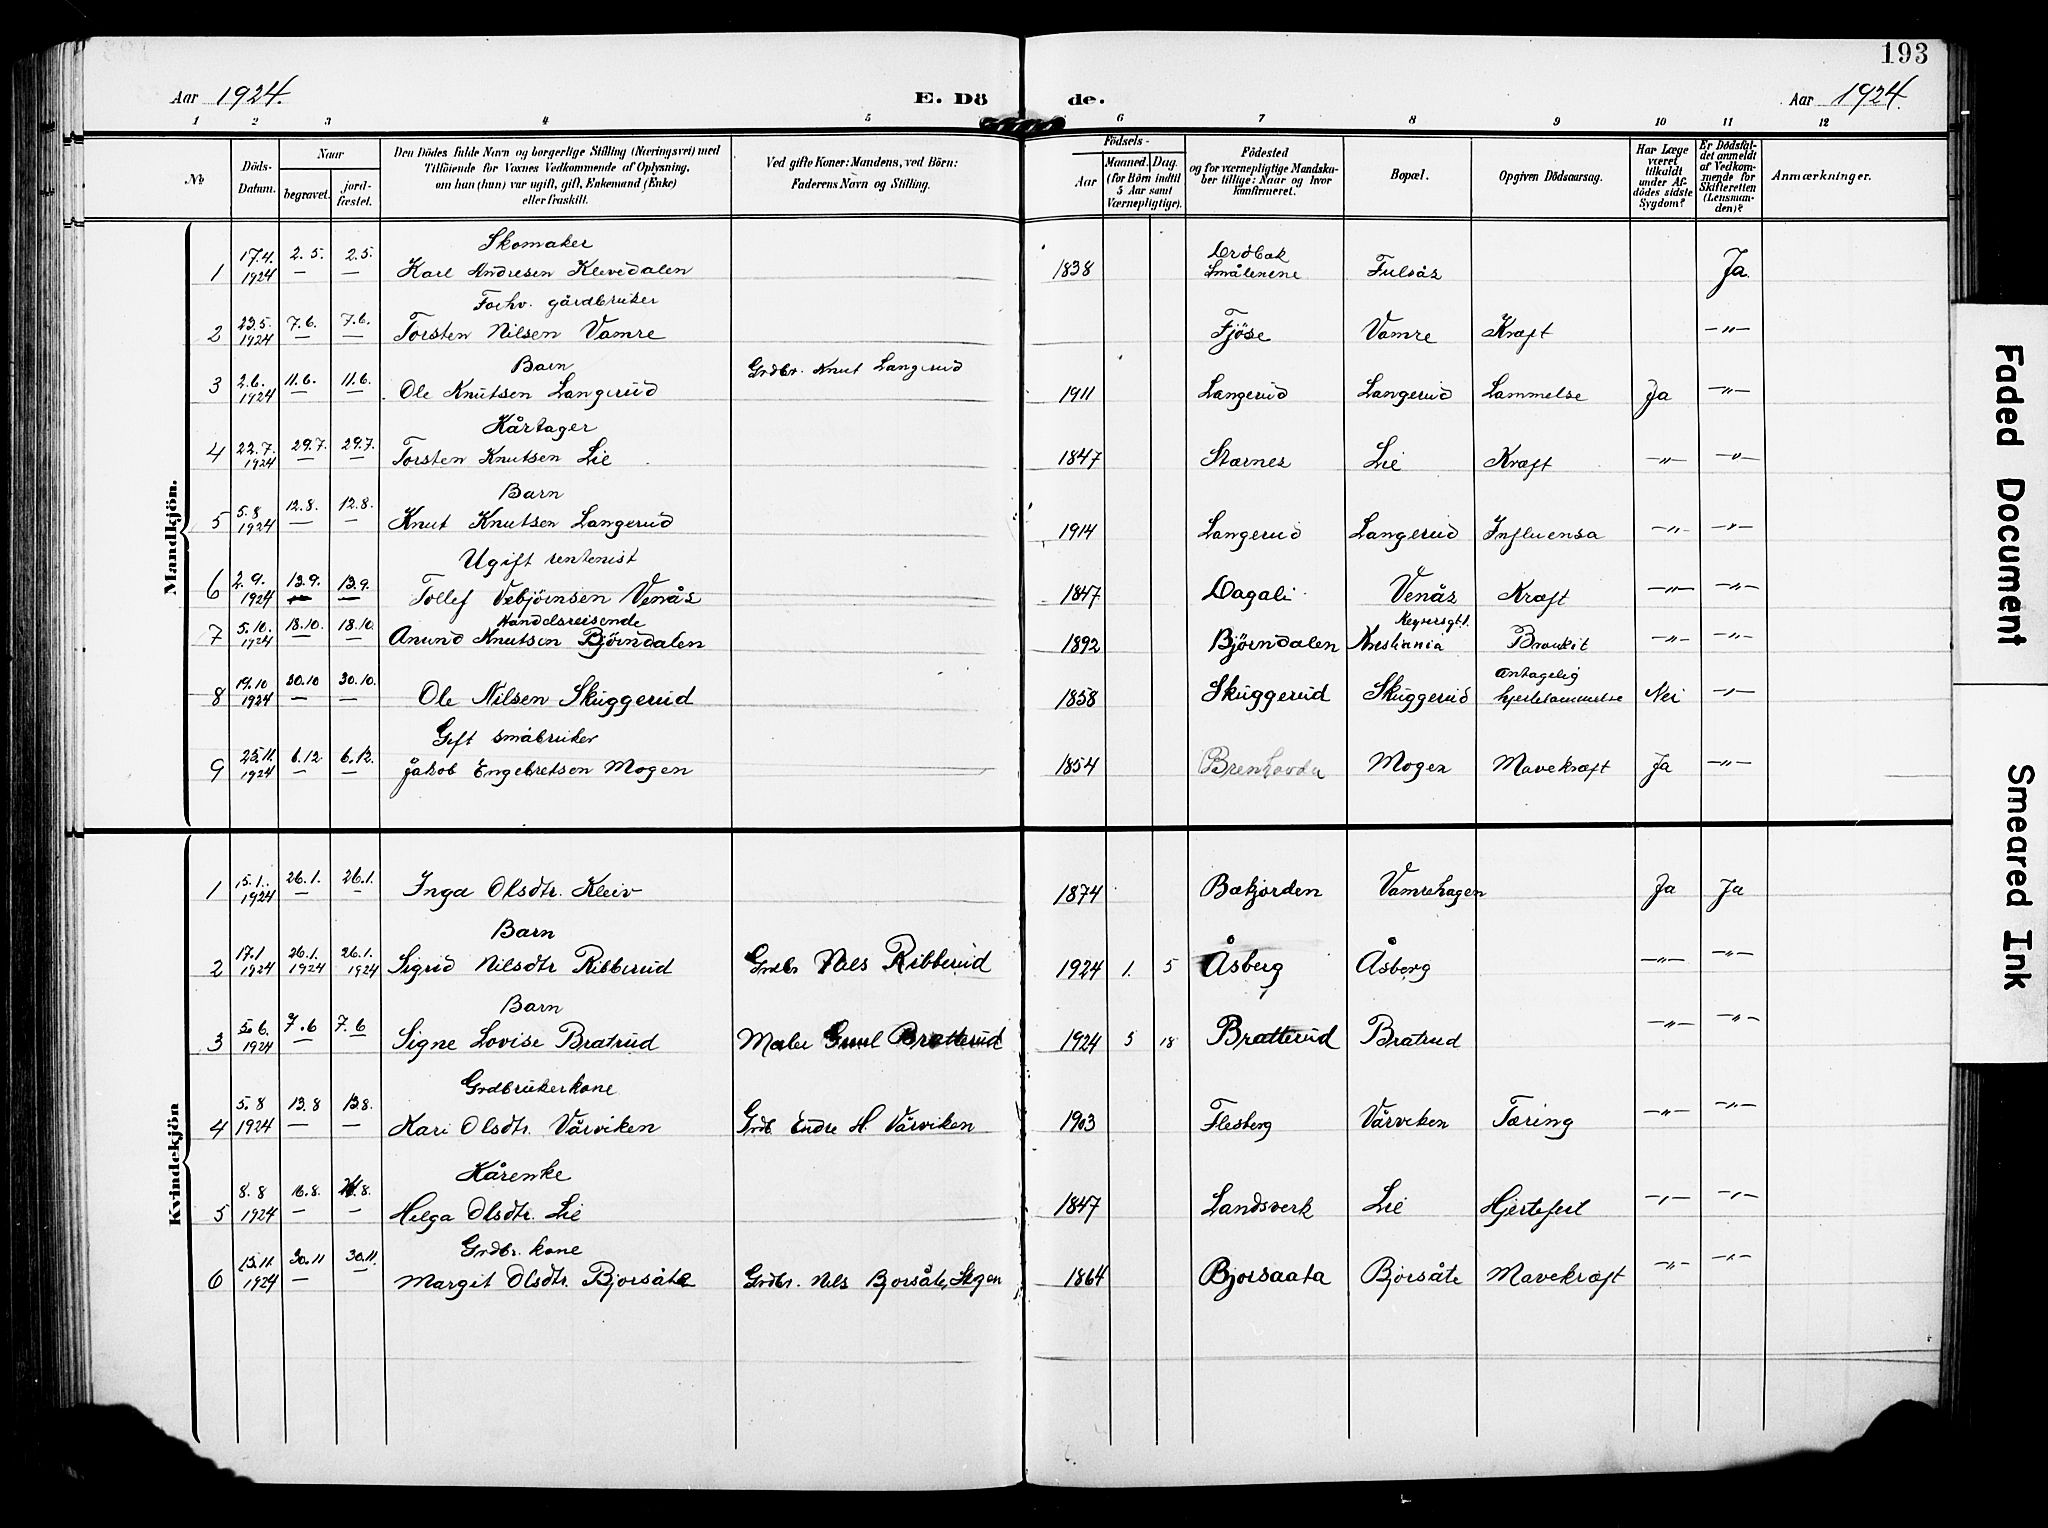 193
Aar 1924. E. Dö de. Aar 1924.
1 2 3 4 5 6 7 8 9 10 11 12
No
Döds-Datum.
Naar
begravet. jordfæstet.
Den Dödes fulde Navn og borgerlige Stilling (Næringsvei) med
Tilföiende for Voxnes Vedkommende af Oplysning,
om han (hun) var ugift, gift, Enkemand (Enke)
eller fraskilt.
Ved gifte Koner: Mandens, ved Börn:
Faderens Navn og Stilling.
Födsels-
Aar Maaned. Dag.
(for Börn indtil
5 Aar samt
Værnepligtige).
Födested
og for værnepligtige Mandskaber
tillige: Naar og hvor
konfirmeret.
Bopæl.
Opgiven Dödsaarsag.
Har Læge
været
tilkaldt
under Afdödes
sidste
Sygdom?
Er Dödsfaldet
anmeldt
af Vedkommende
for
Skifteretten
(Lensmanden)?
Anmærkninger.
Mandkjön.
Skomaker
1 17.4. 1924 2.5. — 2.5. — Karl Andresen Klevedalen 1838 Drøbak Smålenene Fulsås Ja.
Forhv. gårdbruker
2 23.5. 1924 7.6. — 7.6. — Torsten Nilsen Vamre Fjöse Vamre Kræft —"—
Barn
3 2.6. 1924 11.6. — 11.6. — Ole Knutsen Langerud Grdbr. Knut Langerud 1911 Langerud Langerud Lammelse Ja —"—
Kårtager
4 22.7. 1924 29.7. — 29.7. — Torsten Knutsen Lie 1847 Stærnes Lie Kræft —"— —"—
Barn
5 5.8 1924 12.8. — 12.8. — Knut Knutsen Langerud 1914 Langerud Langerud Influensa —"— —"—
Ugift rentenist
6 2.9. 1924 13.9. — 13.9. — Tollef Vebjørnsen Venås 1847 Dagali Venås Kræft —"— —"—
Handelsreisende
7 5.10. 18.10. — 18.10. — Anund Knutsen Bjørndalen 1892 Bjørndalen Kristiania —"— —"—
8 19.10 1924 30.10 — 30.10. — Ole Nilsen Skuggerud 1858 Skuggerud Skuggerud Antagelig hjertelammelse Nei —"—
Gift småbruker
9 25.11. 1924 6.12 — 6.12. — Jakob Engebretsen Mogen 1854 Brenhovda Mogen Mavekræft Ja —"—
Kvindekjön
1 15.1. 1924 26.1. — 26.1. — Inga Olsdtr. Kleiv 1874 Bakjorden Vamrehagen Ja Ja
Barn
2 17.1 1924 26.1. 1924 26.1. 1924 Sigrid Nilsdtr Ribberud Grdbr Nils Ribberud 1924 1. 5 Åsberg Åsberg —"— —"—
Barn
3 5.6. 1924 7.6 — 7.6 — Signe Lovise Bratrud Maler Gunl Bratterud 1924 5 18 Bratterud Bratrud —"— —"—
Grdbrukerkone
4 5.8 1924 13.8 — 13.8. — Kari Olsdtr. Vårviken Grdb Endre H. Vårviken 1903 Flesberg Vårviken Tæring —"— —"—
Kårenke
5 8.8 1924 16.8. — — Helga Olsdtr. Lie 1847 Landsverk Lie Hjertefeil —"— —"—
Grdbr. kone
6 15.11. 1924 30.11 — 30.11. — Margit Olsdtr. Bjorsåte Grdbr. Nils Bjorsåte, 1864 Bjorsaata Bjorsåte Mavekræft —"— —"—
Faded Document
Smeared Ink